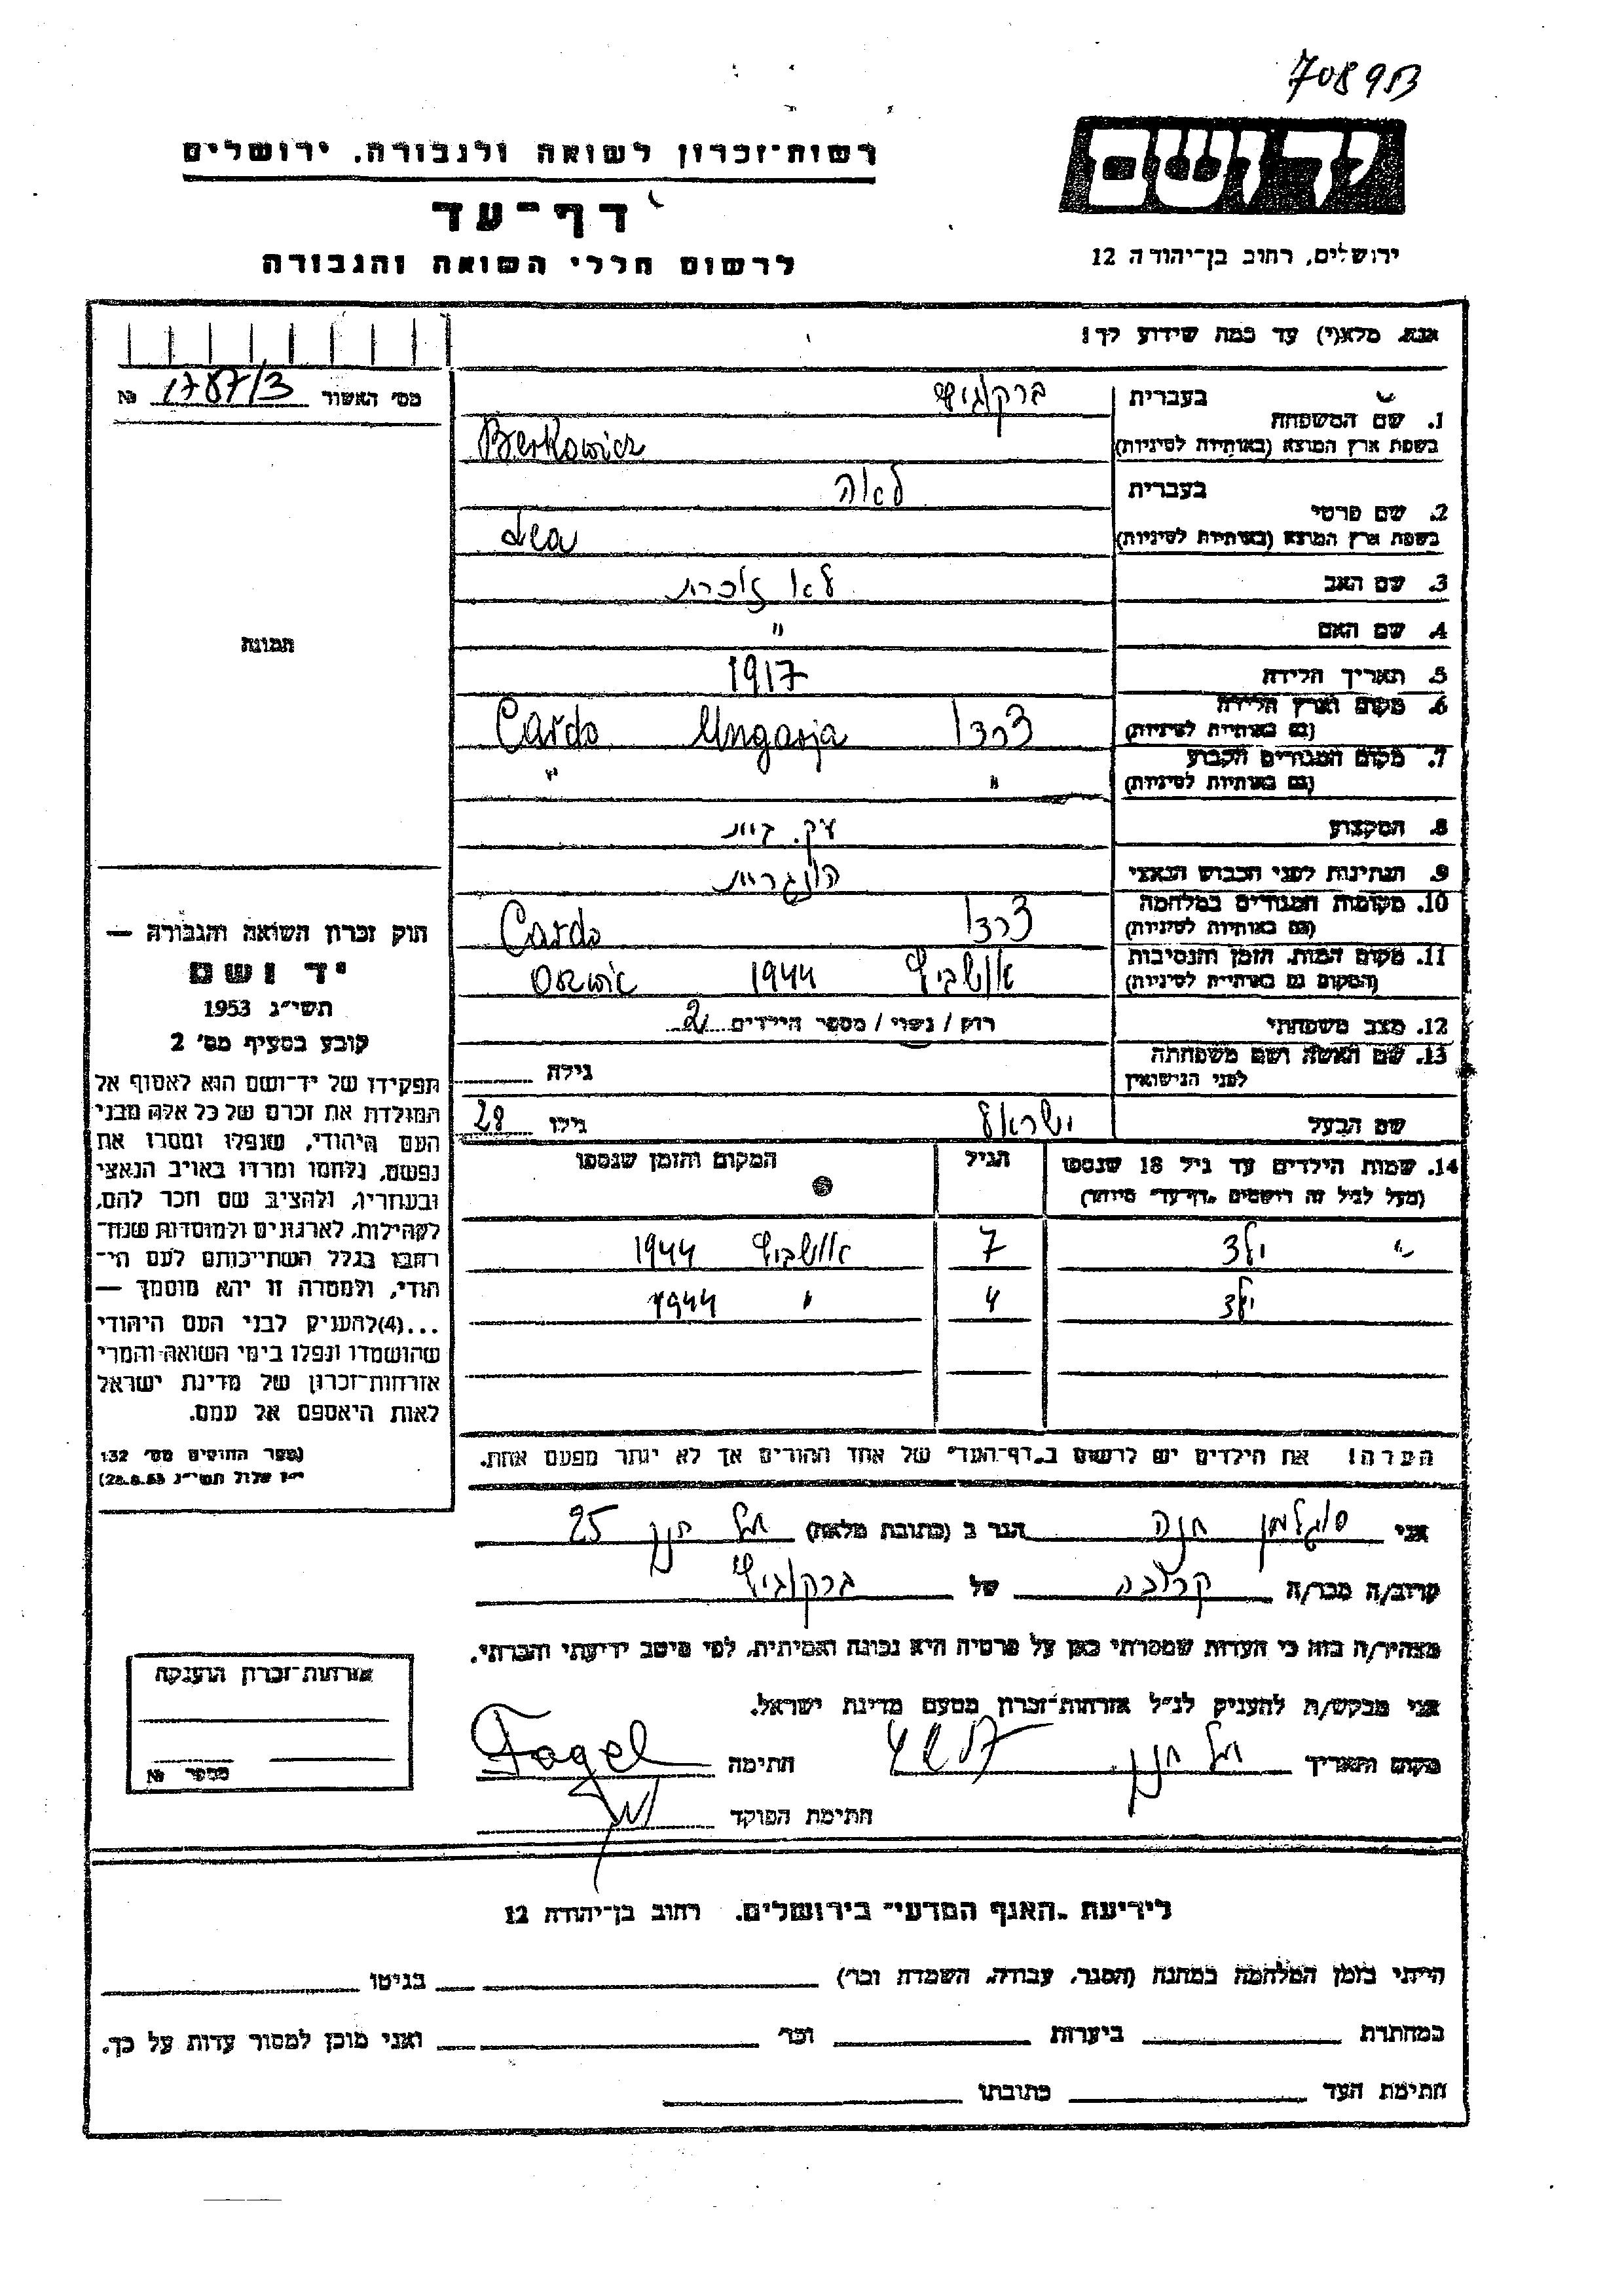 708953
יד ושם
רשות־זכרון לשואה ולגבורה, ירושלים
דף־עד
לרשום חללי השואה והגבורה
ירושלים, רחוב בן־יהודה 12
אנא, מלא(י) עד כמה שידוע לך!
מס׳ האשור 1787/3 №
1. שם המשפחה
בעברית ברקוביץ
בשפת ארץ המוצא (באותיות לטיניות) Berkowicz
2. שם פרטי
בעברית לאה
בשפת ארץ המוצא (באותיות לטיניות) Lea
3. שם האב לא זוכרת
4. שם האם "
5. תאריך הלידה 1917
6. מקום וארץ הלידה
(גם באותיות לטיניות) צרדו Ungarja Cardo
7. מקום המגורים הקבוע
(גם באותיות לטיניות) " "
8. המקצוע עק. בית
9. הנתינות לפני הכבוש הנאצי הונגרית
10. מקומות המגורים במלחמה
(גם באותיות לטיניות) צרדו Cardo
11. מקום המות, הזמן והנסיבות
(המקום גם באותיות לטיניות) אושביץ 1944
12. מצב משפחתי רווק / נשוי / מספר הילדים 2
13. שם האשה ושם משפחתה
לפני הנישואין גילה
שם הבעל ישראל גילו 28
14. שמות הילדים עד גיל 18 שנספו
(מעל לגיל זה רושמים "דף־עד" מיוחד)
הגיל
המקום והזמן שנספו
" ילד 7 אושביץ 1944
ילד 4 " 1944
הערה! את הילדים יש לרשום ב"דף־העד" של אחד ההורים אך לא יותר מפעם אחת.
תמונה
חוק זכרון השואה והגבורה —
יד ושם
תשי״ג 1953
קובע בסעיף מס׳ 2
תפקידו של יד־ושם הוא לאסוף אל
המולדת את זכרם של כל אלה מבני
העם היהודי, שנפלו ומסרו את
נפשם, נלחמו ומרדו באויב הנאצי
ובעוזריו, ולהציב שם וזכר להם,
לקהילות, לארגונים ולמוסדות שנח־
רבו בגלל השתייכותם לעם הי־
הודי, ולמטרה זו יהא מוסמך —
...(4) להעניק לבני העם היהודי
שהושמדו ונפלו בימי השואה והמרי
אזרחות־זכרון של מדינת ישראל
לאות היאספם אל עמם.
(ספר החוקים מס׳ 132
י״ז אלול תשי״ג 28.8.53)
אני חנה הגר ב (כתובת מלאה) תל חנן 25
קרוב/ה מכר/ה קרובה של ברקוביץ
מצהיר/ה בזה כי העדות שמסרתי כאן על פרטיה היא נכונה ואמיתית, לפי מיטב ידיעתי והכרתי.
אני מבקש/ת להעניק לנ״ל אזרחות־זכרון מטעם מדינת ישראל.
מקום ותאריך תל חנן חתימה Fogel
חתימת הפוקד
אזרחות־זכרון הוענקה
מספר №
לידיעת "האגף המדעי" בירושלים, רחוב בן־יהודה 12
הייתי בזמן המלחמה במחנה (הסגר, עבודה, השמדה וכו׳) בגיטו
במחתרת ביערות וכו׳ ואני מוכן למסור עדות על כך.
חתימת העד כתובתו